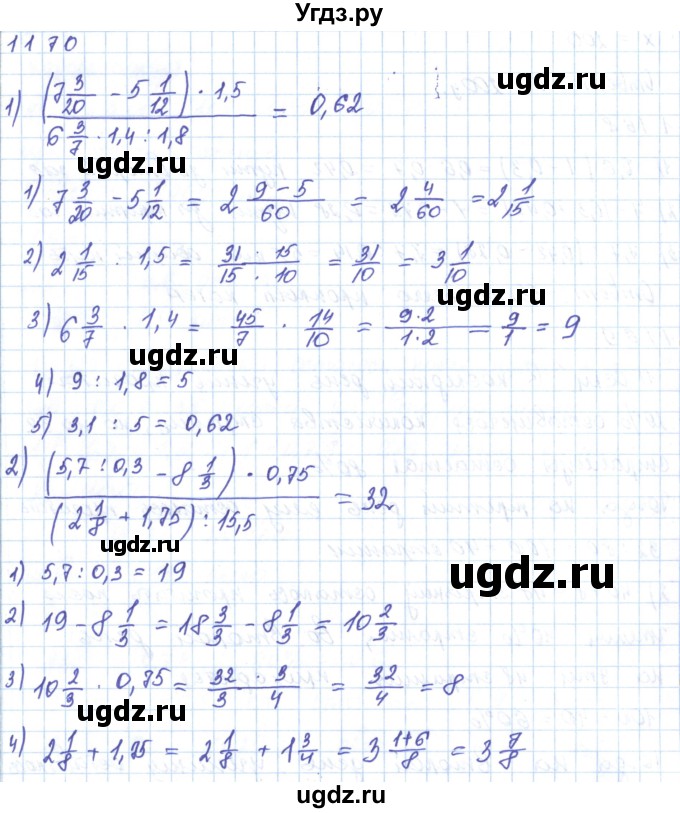 Угдз.ру
1170
1) ((7 3/20 - 5 1/12) · 1,5) / (6 3/7 · 1,4 : 1,8) = 0,62
ugdz.ru
ugdz.ru
1) 7 3/20 - 5 1/12 = 2 (9-5)/60 = 2 4/60 = 2 1/15
ugdz.ru
2) 2 1/15 · 1,5 = (31 · 15)/(15 · 10) = 31/10 = 3 1/10
ugdz.ru
3) 6 3/7 · 1,4 = 45/7 · 14/10 = (9·2)/(1·2) = 9/1 = 9
ugdz.ru
4) 9 : 1,8 = 5
5) 3,1 : 5 = 0,62
2) ((5,7 : 0,3 - 8 1/3) · 0,75) / ((2 1/8 + 1,75) : 15,5) = 32
ugdz.ru
1) 5,7 : 0,3 = 19
ugdz.ru
2) 19 - 8 1/3 = 18 3/3 - 8 1/3 = 10 2/3
3) 10 2/3 · 0,75 = (32 · 3)/(3 4) = 32/4 = 8
ugdz.ru
4) 2 1/8 + 1,75 = 2 1/8 + 1 3/4 = 3 (1+6)/8 = 3 7/8
ugdz.ru